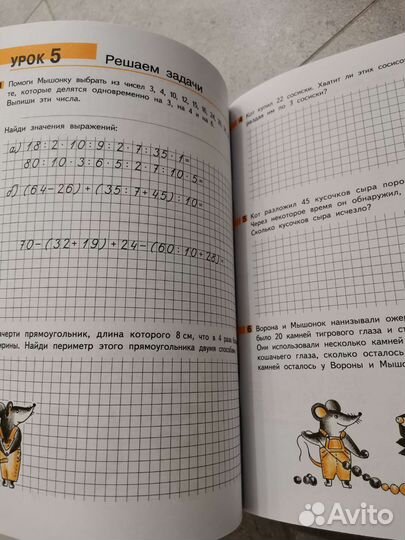 УРОК 5
Решаем задачи
Помоги Мышонку выбрать из чисел 3, 4, 10, 12, 15, 16, 24,
те, которые делятся одновременно на 3, на 4 и на 6.
Выпиши эти числа.
Найди значения выражений:
а) 18 : 2 · 10 : 9 : 2 · 7 : 35 · 1 =
80 : 10 · 3 : 6 · 5 : 2 · 7 : 10 · 5 =
б) (64 − 26) + (35 : 7 + 45) : 10 =
70 − (32 + 19) + 24 − (60 : 10 + 28) =
черти прямоугольник, длина которого 8 см, что в 4 раза
рины. Найди периметр этого прямоугольника двумя
4
Кот купил 22 сосиски. Хватит ли этих сосисо
раздал им по 3 сосиски?
5
Кот разложил 45 кусочков сыра поро
Через некоторое время он обнаружил,
Сколько кусочков сыра исчезло?
6
Ворона и Мышонок нанизывали ожер
было 20 камней тигрового глаза и ст
Они использовали несколько камней
кошачьего глаза, сколько осталось
камней осталось у Вороны и Мышо
Avito